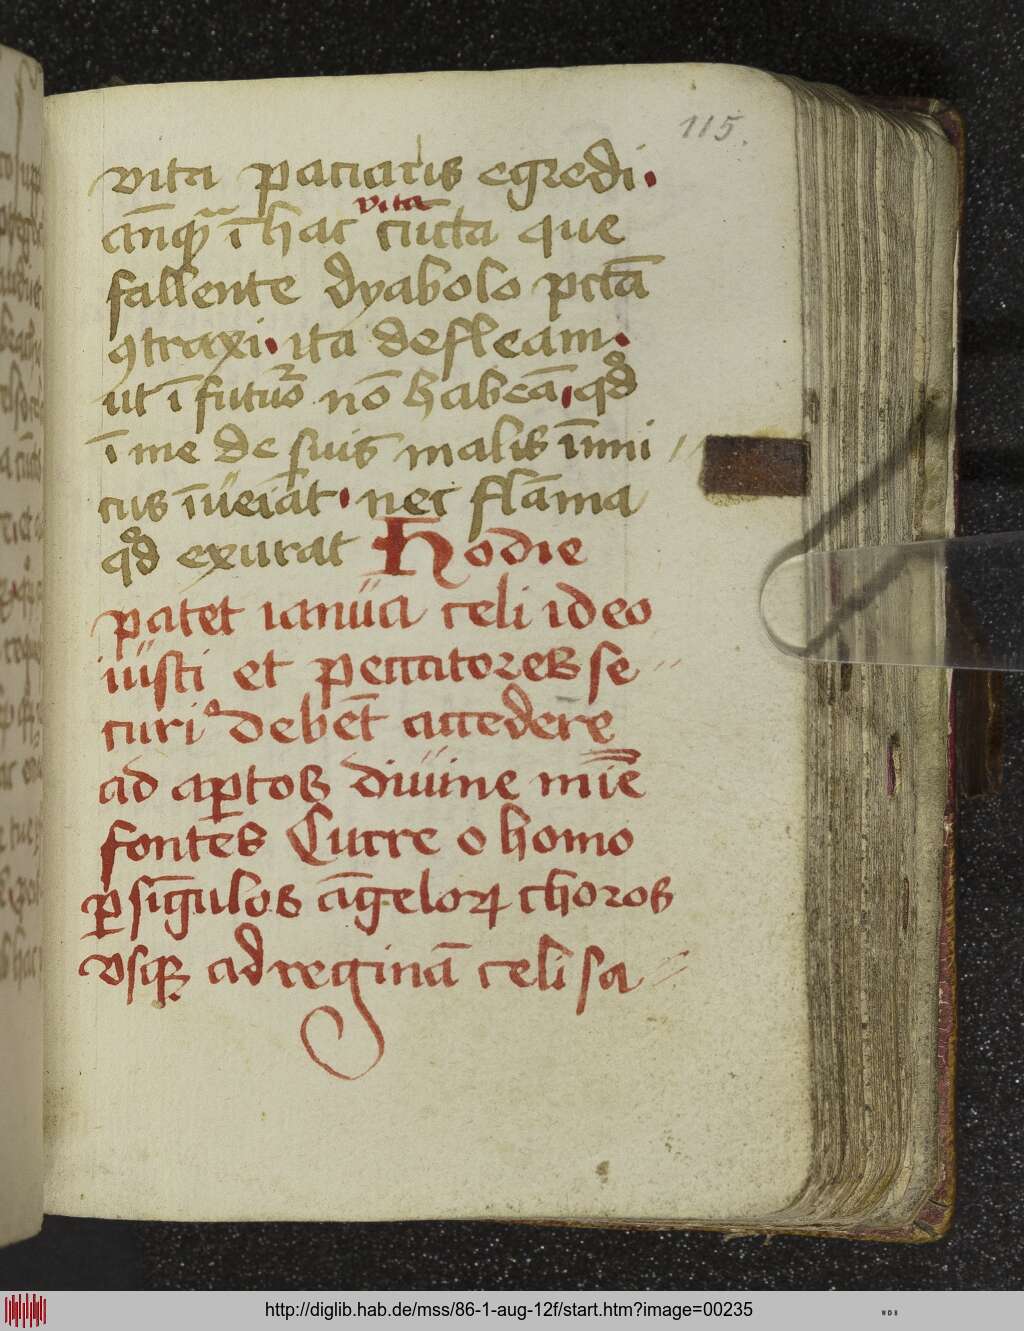 115.
vita paciaris egredi.
an̄q̄ ī hac vita cūcta que
fallente dyabolo pctā
ꝯtraxi. ita defleam.
ut ī futuro nō habeā. qd
ī me de suis malis īimi
cus īueiat. nec flāma
qd exurat Hodie
patet ianua celi ideo
iusti et peccatores se
curi debēt accedere
ad aꝑtos divine mīe
fontes Curre o homo
ꝑ singulos āgeloꝝ choros
vsqꝫ ad reginā celi sa
http://diglib.hab.de/mss/86-1-aug-12f/start.htm?image=00235